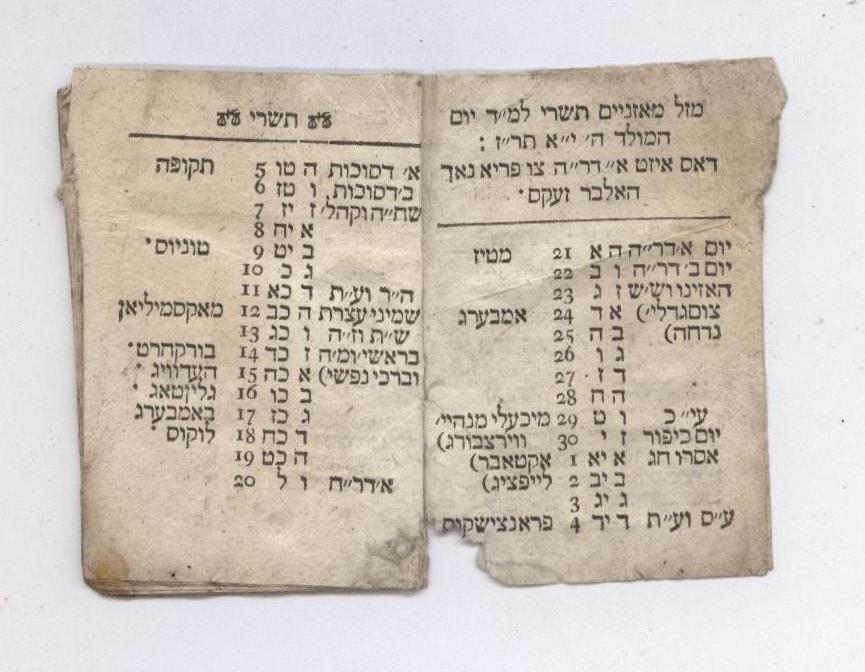 מזל מאזניים תשרי למ״ד יום
המולד ה׳ י״א תר״ז :
דאס איזט א״דר״ה צו פריא נאך
האלבר זעקס׳
יום א׳דר״ה ה א 21 מטיז
יום ב׳דר״ה ו ב 22
האזינו וש״ש ז ג 23
צוםגדלי׳) א ד 24 אמבערג
נדחה) ב ה 25
ג ו 26
ד ז 27
ה ח 28
עי״כ ו ט 29 מיכעלי מנהיי׳
יום כיפור ז י 30 ווירצבורג)
אסרו חג א יא 1 אקטאבר)
ב יב 2 לייפציג)
ג יג 3
ע״ס וע״ת ד יד 4 פראנצישקוס
תשרי
א׳ דסוכות ה טו 5 תקופה
ב׳דסוכות ו טז 6
שח״ה וקהל׳ ז יז 7
א יח 8
ב יט 9 טוניוס
ג כ 10
ה״ר וע״ת ד כא 11
שמיני עצרת ה כב 12 מאקסמיליאן
ש״ת וז״ה ו כג 13
בראשי׳ומ״ה ז כד 14 בורקהרט
וברכי נפשי) א כה 15 העדוויג
ב כו 16 גליןטאג
ג כז 17 באמבערג
ד כח 18 לוקוס
ה כט 19
א׳דר״ח ו ל 20